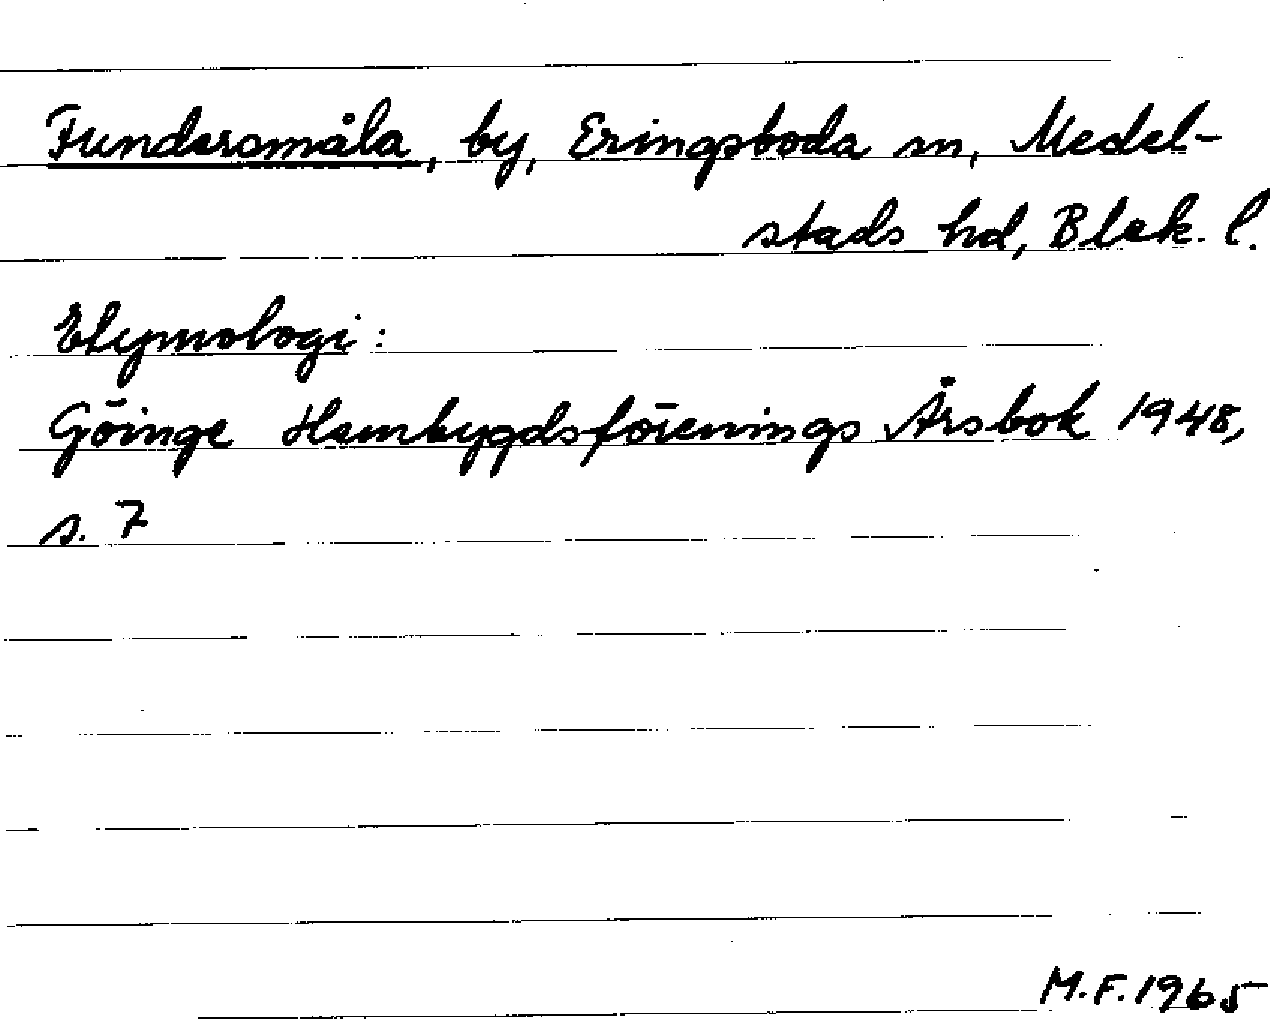 Fundersmåla, by, Eringsboda sn, Medel-
stads hd, Blek. l.
Etymologi:
Göinge Hembygdsförenings Årsbok 1948,
s. 7
M.F. 1965